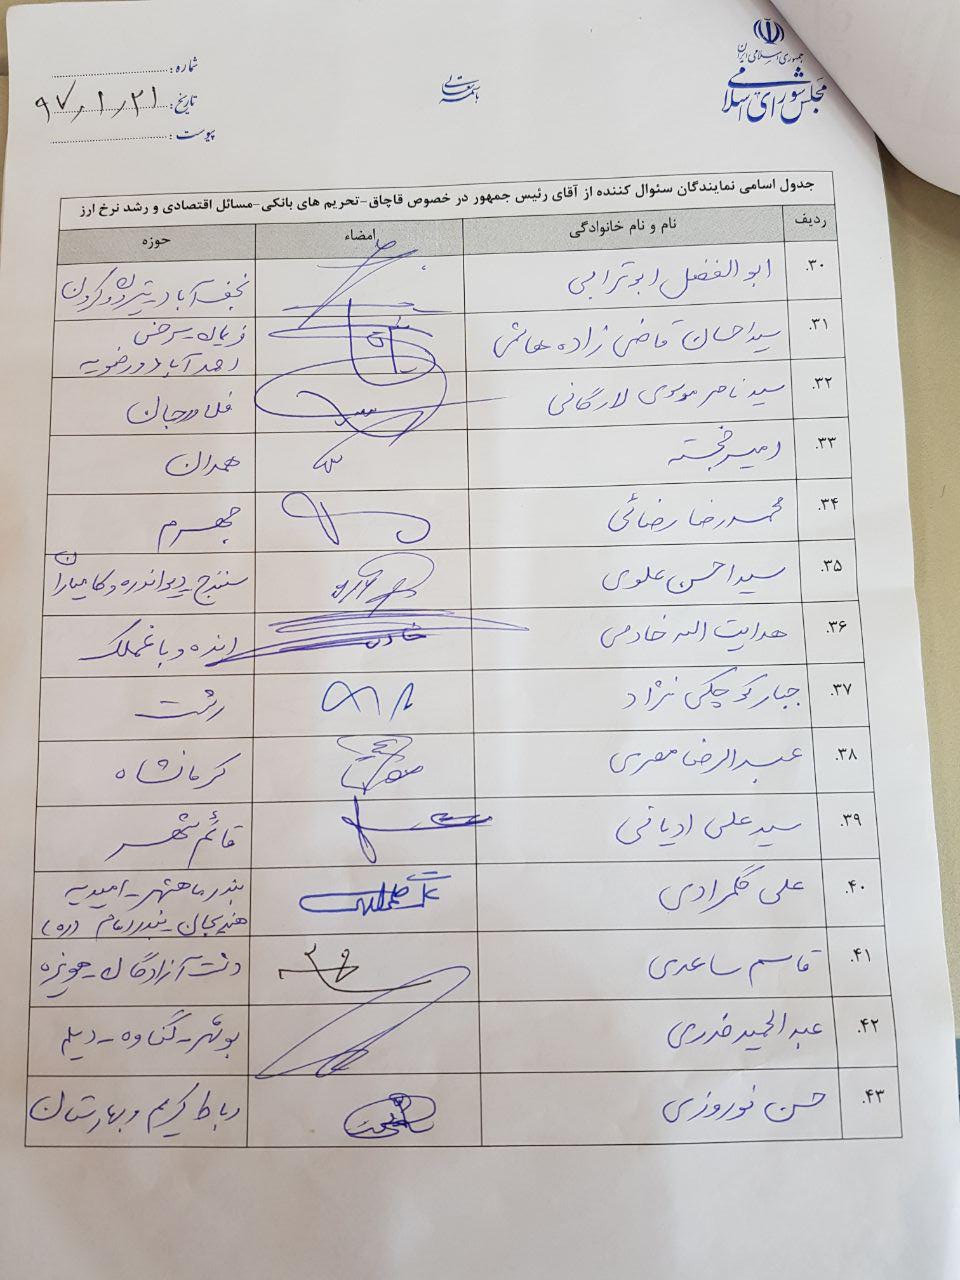 جمهوری اسلامی ایران
مجلس شورای اسلامی
باسمه تعالی
شماره:
تاریخ: ۹۷/۱/۲۱
پیوست:
جدول اسامی نمایندگان سئوال کننده از آقای رئیس جمهور در خصوص قاچاق-تحریم های بانکی-مسائل اقتصادی و رشد نرخ ارز
ردیف نام و نام خانوادگی امضاء حوزه
۳۰. ابوالفضل ابوترابی نجف آباد-تیران و کرون
۳۱. سید احسان قاضی زاده هاشمی فریمان-سرخس
احمدآباد و رضویه
۳۲. سید ناصر موسوی لارگانی فلاورجان
۳۳. امیر خجسته همدان
۳۴. محمدرضا رضائی جهرم
۳۵. سید احسن علوی سنندج-دیواندره و کامیاران
۳۶. هدایت الله خادمی خادمی ایذه و باغملک
۳۷. جبار کوچکی نژاد رشت
۳۸. عبدالرضا مصری کرمانشاه
۳۹. سید علی ادیانی قائم شهر
۴۰. علی گلمرادی بندر ماهشهر-امیدیه
هندیجان-بندر امام (ره)
۴۱. قاسم ساعدی دشت آزادگان-هویزه
۴۲. عبدالحمید خدری بوشهر-گناوه-دیلم
۴۳. حسن نوروزی رباط کریم و بهارستان